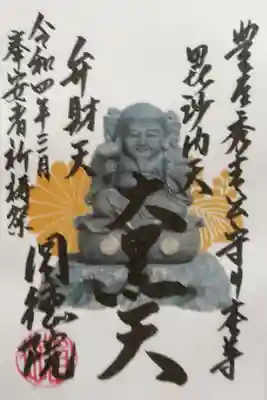 豊臣秀吉公守り本尊
毘沙門天
大黒天
弁財天
令和四年三月
奉安
圓徳院